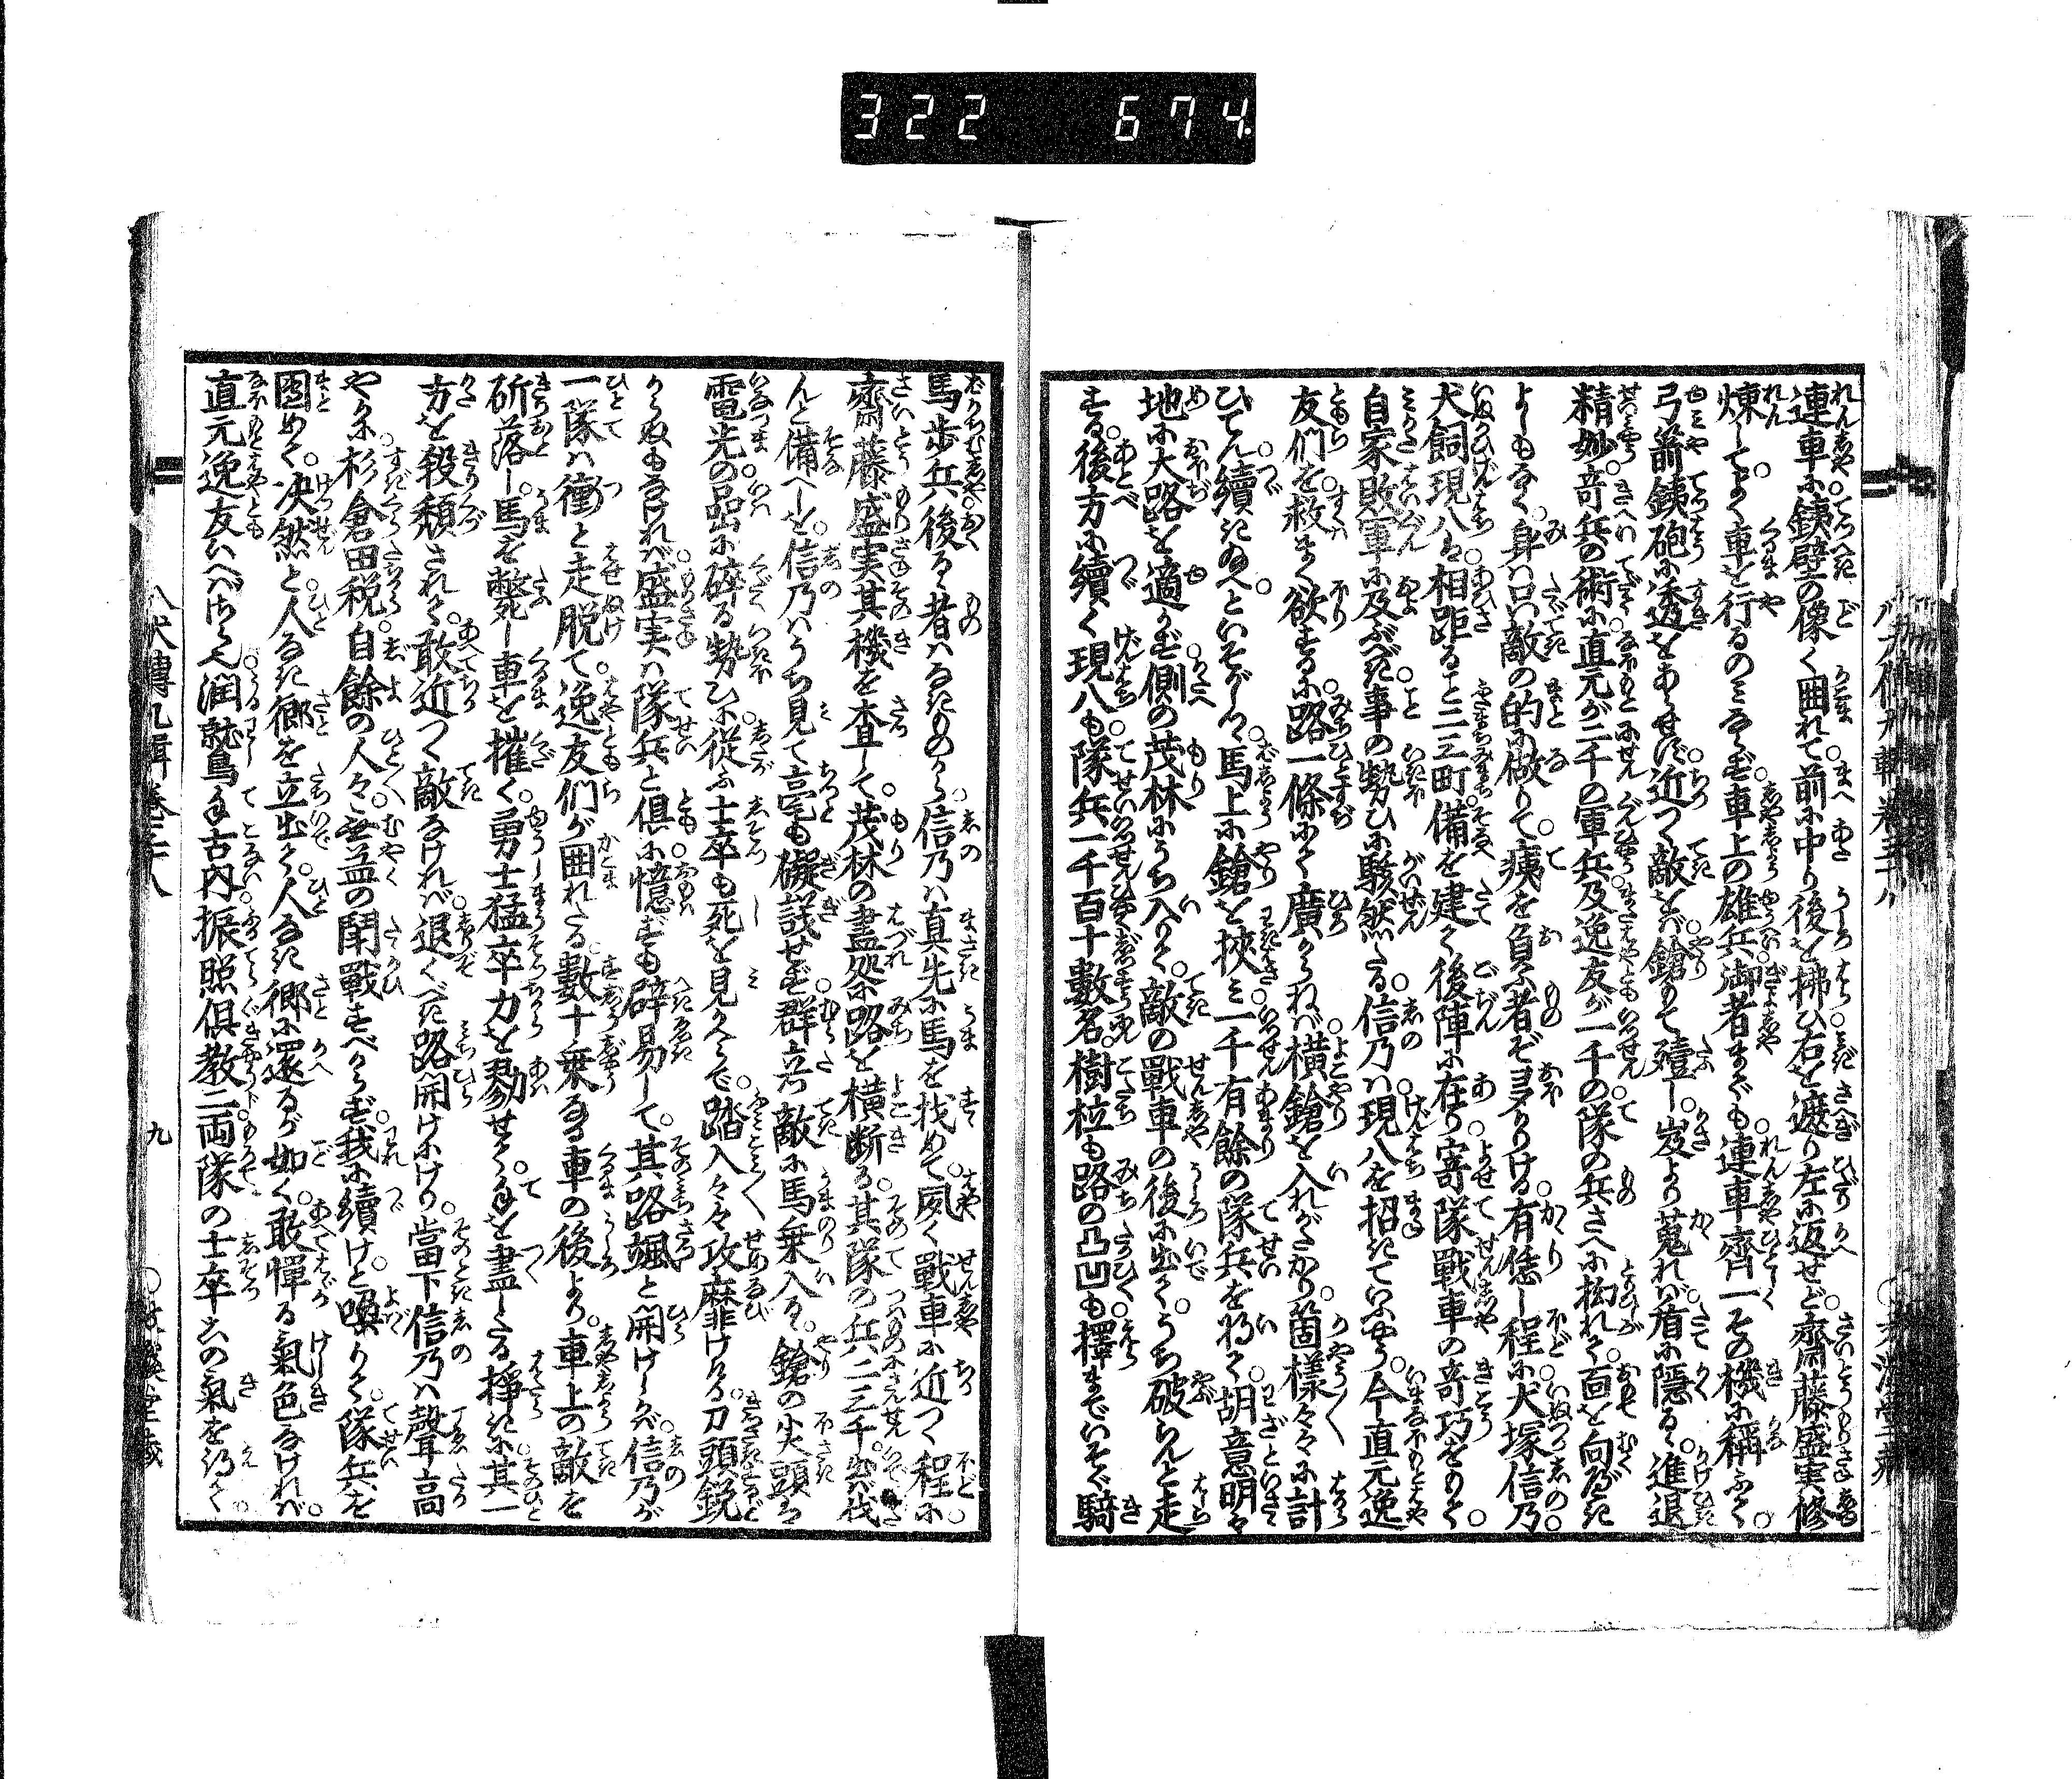 322 674
連車に銕壁の像く囲れて前に中り後を拂ひ右を遮り左に返せど齋藤盛実修
煉してよく車を行るのみならず車上の雄兵御者までも連車齊一その機に稱ふて
弓箭銕砲に透をあらせず近つく敵をバ鎗もて殪し岌より蒐れバ盾に隠る進退
精妙竒兵の術に直元が二千の軍兵及逸友が一千の隊の兵さへに拘れて面を向べき
よしもなく身ハ只敵の的に做りて痍を負ふ者ぞヨタかりける有恁し程に犬塚信乃
犬飼現八ハ相距ると二三町備を建て後陣に在り寄隊戰車の竒巧をもて
自家敗軍に及ぶべき事の勢ひに駭然たる信乃ハ現八を招きていふやう今直元逸
友們を救まく欲するに路一條にて廣からねバ横鎗を入れがたかり箇様々々に計
ひてん續きねといそがしく馬上に鎗を挾み一千有餘の隊兵を將て胡意明々
地に大路を適かず側の茂林にうち入りて敵の戰車の後に出てうち破らんと走
する後方に續く現八も隊兵一千百十數名樹柆も路の凸凹も擇までいそぐ騎
馬歩兵後るゝ者ハなきものから信乃ハ真先に馬を找めて夙く戰車に近つく程に
齋藤盛実其機を査して茂林の盡処に路を横断る其隊の兵二三千出バ伐
んと備へしを信乃ハうち見て毫も礙議せず群立敵に馬乗入るゝ鎗の尖頭ハ
電光の品出に碎る勢ひに從ふ士卒も死を見かへらで踏入々々攻靡けける刀頭鋭
からぬもなけれバ盛実ハ隊兵と倶に憶ずも辟易して其路颯と開けしかバ信乃が
一隊ハ衝と走脱て逸友們が囲れたる數十乗なる車の後より車上の敵を
斫落し馬を斃し車を摧く勇士猛卒力を勠せ手を盡したる挊きに其一
方を殺頽されて敢近つく敵なけれバ退くべき路開けにけり當下信乃ハ聲高
やかに杉倉田税自餘の人々無益の鬪戰すべからず我に續けと喚りて隊兵を
圓めて决然と人なき郷を立出て人なき郷に還るが如く敢憚る氣色なけれバ
直元逸友いへバさら也潤鷲手古内振照倶教二両隊の士卒共の氣を得て
八犬傳九輯巻三十八
九